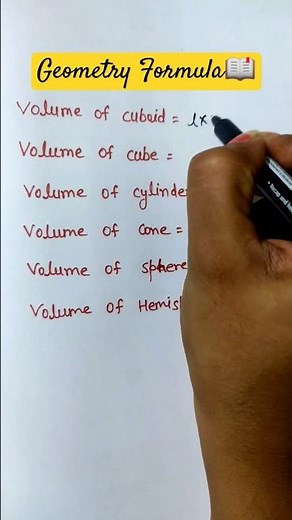 Geometry Formula📖
Volume of cuboid = l×
Volume of cube =
Volume of cylinde
Volume of Cone =
Volume of sphere
Volume of Hemis